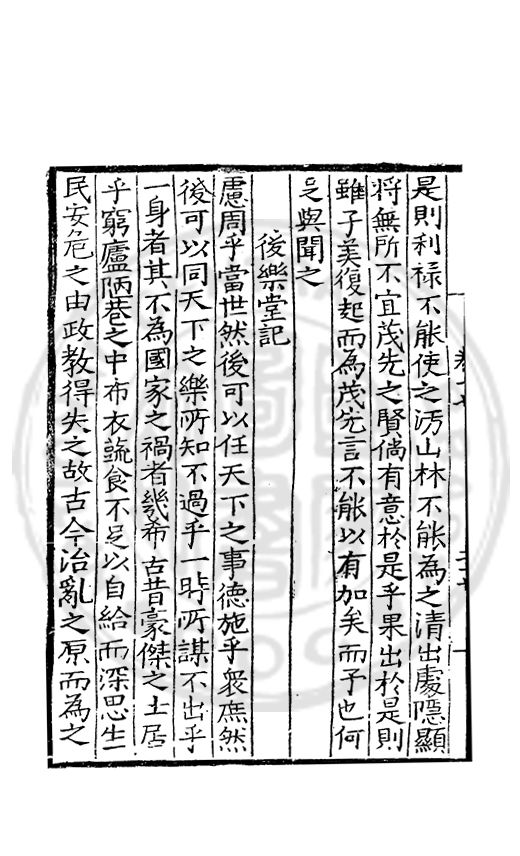 是則利祿不能使之汚山林不能為之清出處隱顯
將無所不宜茂先之賢倘有意於是乎果出於是則
雖子美復起而為茂先言不能以有加矣而予也何
足與聞之
後樂堂記
慮周乎當世然後可以任天下之事德施乎衆庶然
後可以同天下之樂所知不過乎一時所謀不出乎
一身者其不為國家之禍者幾希古昔豪傑之士居
乎窮廬陋巷之中布衣蔬食不足以自給而深思生
民安危之由政教得失之故古今治亂之原而為之